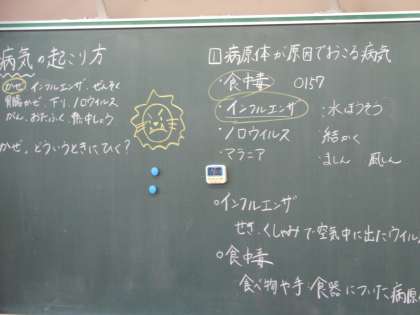 病気の起こり方
かぜ インフルエンザ、ぜんそく
胃腸かぜ、下り、ノロウイルス
がん、おたふく、熱中しょう
かぜ、どういうときにひく?
1 病原体が原因でおこる病気
・食中毒 O157
・インフルエンザ ・水ぼうそう
・ノロウイルス ・結かく
・マラニア ・ましん 風しん
○インフルエンザ
せき、くしゃみで空気中に出たウイル
○食中毒
食べ物や手、食器についた病原